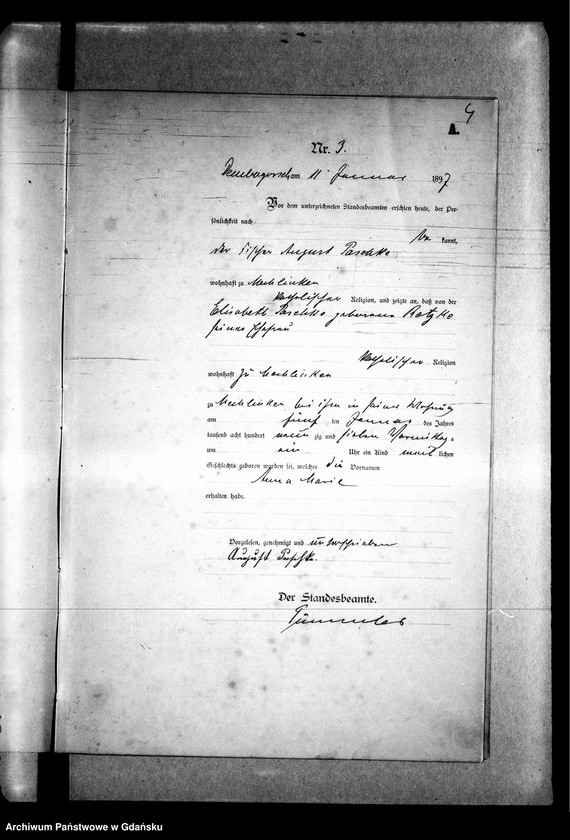 4
A.
Nr. 3.
Dembogorsch am 11 Januar 1897
Vor dem unterzeichneten Standesbeamten erschien heute, der Per-
sönlichkeit nach
be kannt,
der Fischer August Paschke
wohnhaft zu Mechlinken
katholischer Religion, und zeigte an, daß von der
Elisabeth Paschke geborene Rotzke
seiner Ehefrau
katholischer Religion
wohnhaft zu Mechlinken
zu Mechlinken bei ihm in seiner Wohnung
am fünf ten Januar des Jahres
tausend acht hundert neun zig und sieben Vormittags
um ein Uhr ein Kind weib lichen
Geschlechts geboren worden sei, welches die Vornamen
Anna Marie
erhalten habe.
Vorgelesen, genehmigt und unterschrieben
August Paschke.
Der Standesbeamte.
Archiwum Państwowe w Gdańsku